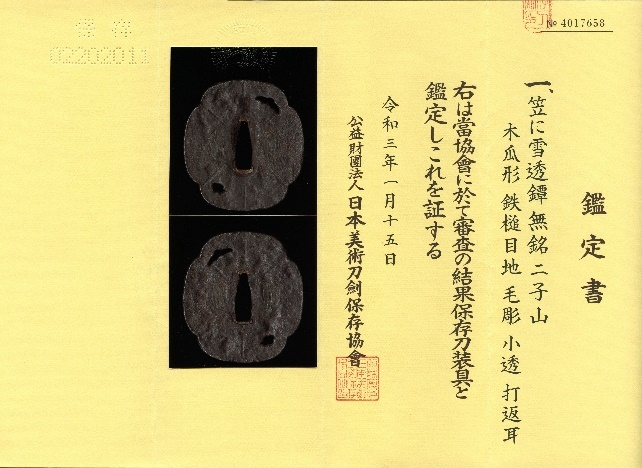 № 4017658
鑑定書
一、笠に雪透鐔 無銘 二子山
木瓜形 鉄槌目地 毛彫 小透 打返耳
右は當協會に於て審査の結果保存刀装具と
鑑定しこれを証する
令和三年一月十五日
公益財團法人 日本美術刀劍保存協會
保存
02202011